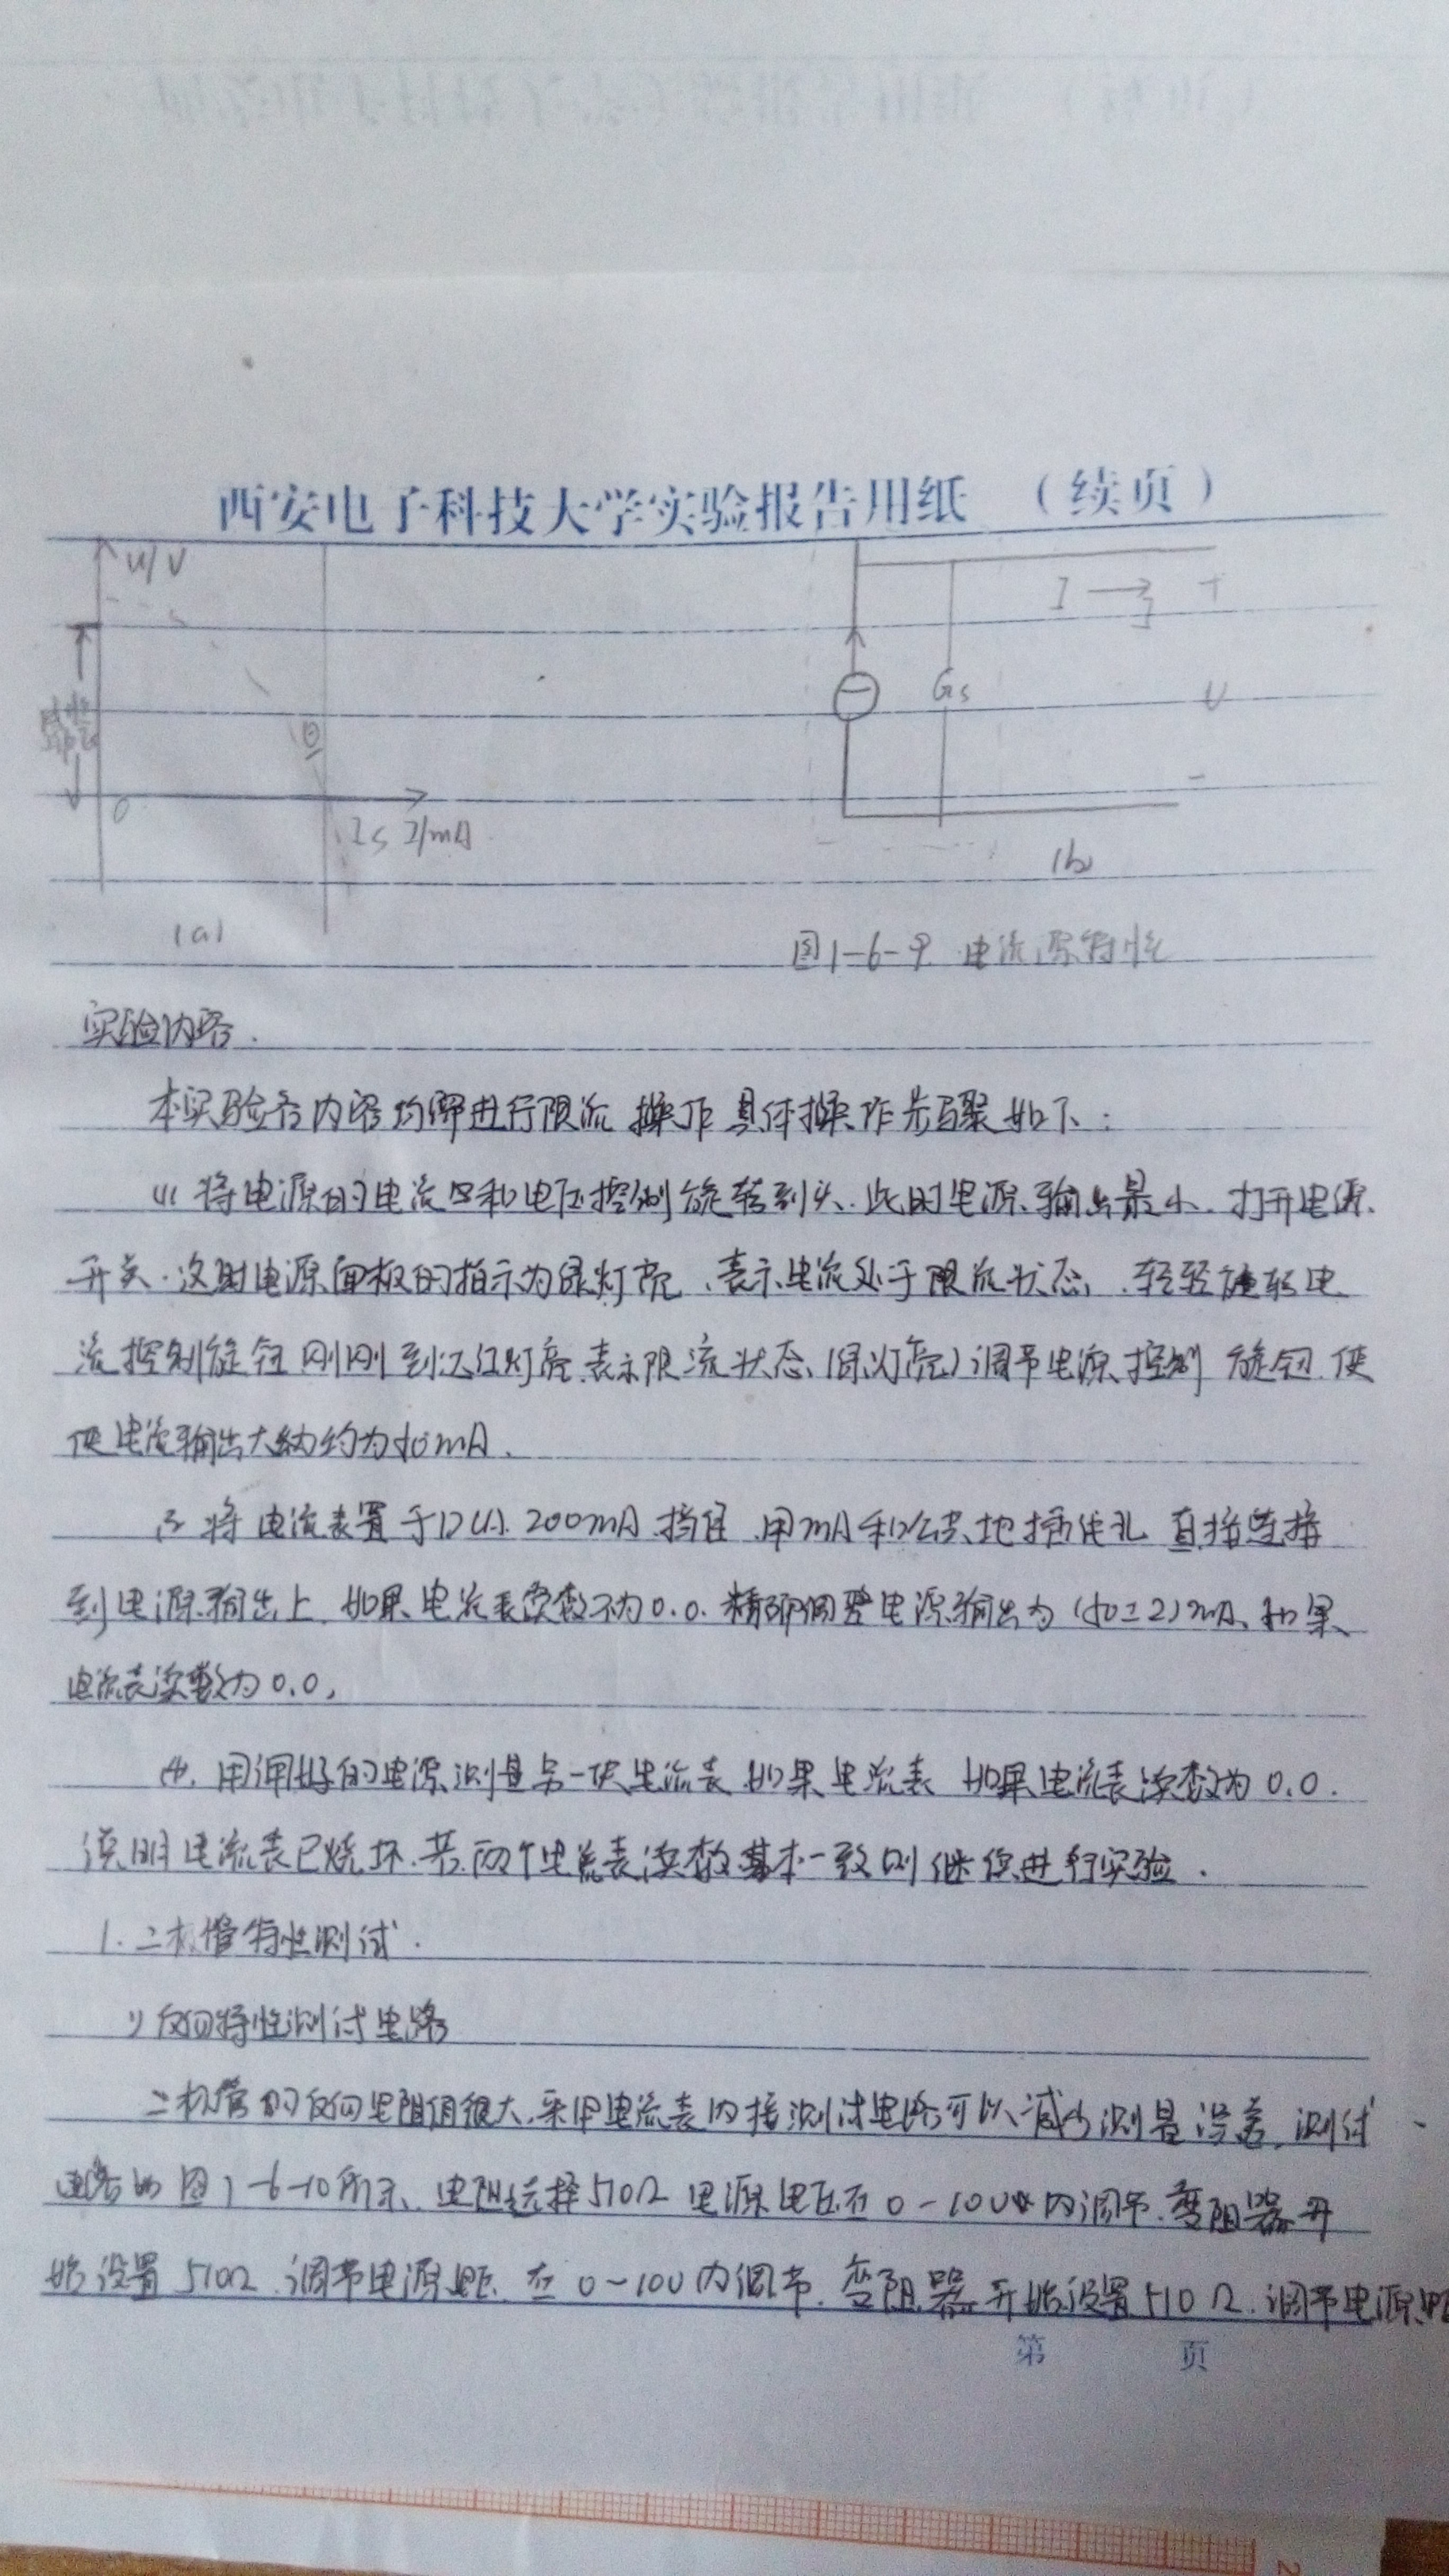 西安电子科技大学实验报告用纸 （续页）
U/V
I → +
Gs U
0 -
Is I/mA
(b)
(a)
图1-6-9 电流源特性
实验内容.
本实验各内容均需进行限流 操作 具体操作步骤如下:
(1) 将电源的电流 和电压控制旋转到头.此时电源输出最小.打开电源
开关.这时电源面板的指示为绿灯亮、表示电流处于限流状态, 轻轻旋转电
流控制旋钮 刚刚到达红灯亮.表示限流状态(绿灯亮)调节电源控制 旋钮.使
使电流输出大纳约为40mA.
将电流表置于DCA 200mA 挡位 用mA和公共地插座孔 直接连接
到电源输出上.如果电流表读数不为0.0.精确调整电源输出为(40±2)mA、如果
电流表读数为0.0,
用调好的电源测量另一伏电流表.如果电流表 如果电流表读数为0.0.
说明电流表已烧坏.若两个电流表读数基本一致则继续进行实验.
1.二极管特性测试.
1) 反向特性测试电路
二极管的反向电阻值很大.采用电流表内接测试电路可以减少测量误差,测试
电路如图1-6-10所示、电阻选择510Ω 电源电压在0-10V 内调节.变阻器开
始设置510Ω.调节电源 在0~10V内调节.变阻器开始设置510Ω.调节电源
第 页